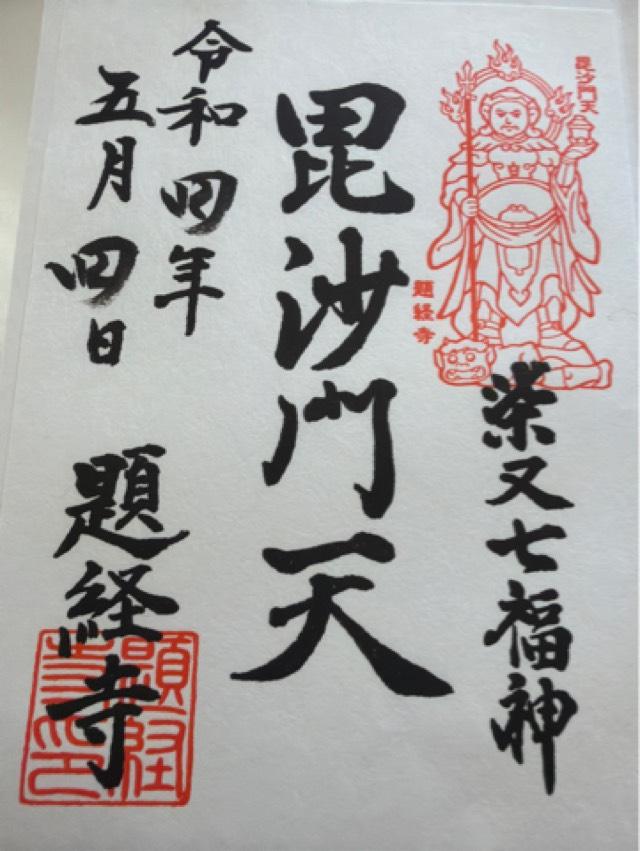 毘沙門天
題経寺
柴又七福神
毘沙門天
令和四年
五月四日
題経寺